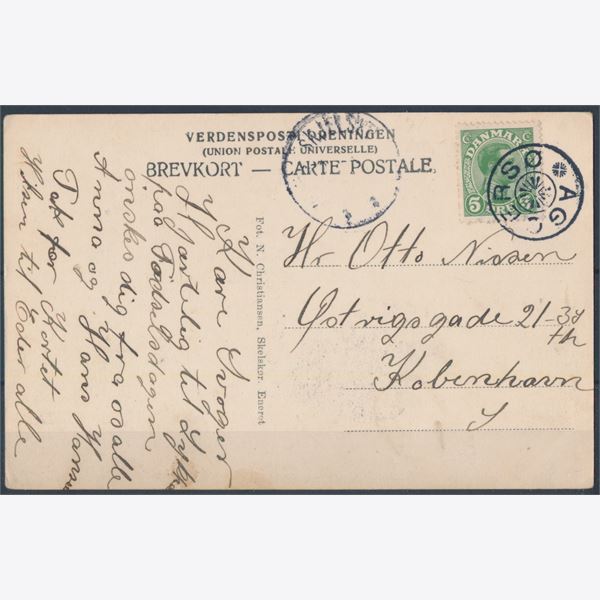 VERDENSPOSTFORENINGEN
(UNION POSTALE UNIVERSELLE)
BREVKORT — CARTE POSTALE.
DANMARK
5 ØRE
AGERSØ
Hr Otto Nissen
Østrigsgade 21-3d
th
København
S
Fot. N. Christiansen, Skelskør. Eneret
Kære Svoger
Hjærtelig til Lykke
paa Fødselsdagen
ønskes dig fra os alle
Anna og Hans
Tak for Kortet
Hilsen til Eder alle